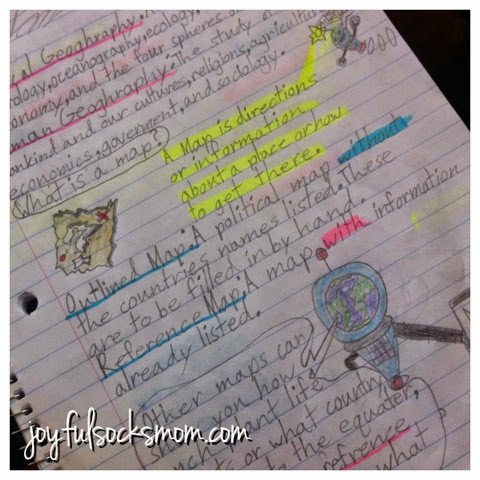 cal Geoghraphy:
ology, oceanography, ecology,
onomy, and the four spheres of
man Geoghraphy: The study of
ankind and our cultures, religions, agriculture
economics, government, and sociology.
What is a map?
A Map is directions
or information
about a place or how
to get there.
Outlined Map: A political map without
the countries names listed. These
are to be filled in by hand.
Reference Map: A map with information
already listed.
Other maps can
you how
plant life
or what country
to the equater,
refrence
what
joyfulsocksmom.com